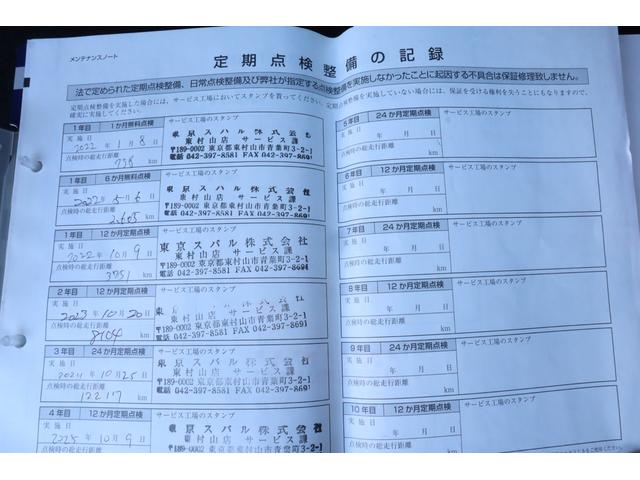 メンテナンスノート
定期点検整備の記録
法で定められた定期点検整備、日常点検整備及び弊社が指定する点検整備を実施しなかったことに起因する不具合は保証修理致しません。
定期点検整備を実施した場合には、サービス工場においてスタンプを貰ってください。定期点検整備を実施していない場合には、保証を受ける権利を失うことにもなりますので、
確実に実施してください。
1年目 1か月無料点検 サービス工場のスタンプ
実施日
2022年 1月 8日
点検時の総走行距離
778 km
東京スバル株式会社
東村山店 サービス課
〒189-0002 東京都東村山市青葉町3-2-1
電話 042-397-8581 FAX 042-397-8631
1年目 6か月無料点検 サービス工場のスタンプ
実施日
2022年5月6日
点検時の総走行距離
2605 km
東京スバル株式会社
東村山店 サービス課
〒189-0002 東京都東村山市青葉町3-2-1
電話 042-397-8581 FAX 042-397-8631
1年目 12か月定期点検 サービス工場のスタンプ
実施日
2022年10月9日
点検時の総走行距離
3751 km
東京スバル株式会社
東村山店 サービス課
〒189-0002 東京都東村山市青葉町3-2-1
電話 042-397-8581 FAX 042-397-8631
2年目 12か月定期点検 サービス工場のスタンプ
実施日
2023年10月20日
点検時の総走行距離
8104 km
東村山店 サービス課
〒189-0002 東京都東村山市青葉町3-2-1
電話 042-397-8581 FAX 042-397-8631
3年目 24か月定期点検 サービス工場のスタンプ
実施日
2024年10月25日
点検時の総走行距離
12217 km
東京スバル株式会社
東村山店 サービス課
〒189-0002 東京都東村山市青葉町3-2-1
電話 042-397-8581 FAX 042-397-8631
4年目 12か月定期点検 サービス工場のスタンプ
実施日
2025年10月9日
点検時の総走行距離
東京スバル株式会社
東村山店 サービス課
5年目 24か月定期点検 サービス工場のスタンプ
実施日
年 月 日
点検時の総走行距離
km
6年目 12か月定期点検 サービス工場のスタンプ
実施日
年 月 日
点検時の総走行距離
km
7年目 24か月定期点検 サービス工場のスタンプ
実施日
年 月 日
点検時の総走行距離
km
8年目 12か月定期点検 サービス工場のスタンプ
実施日
年 月 日
点検時の総走行距離
km
9年目 24か月定期点検 サービス工場のスタンプ
実施日
年 月 日
点検時の総走行距離
km
10年目 12か月定期点検 サービス工場のスタンプ
実施日
年 月 日
点検時の総走行距離
km